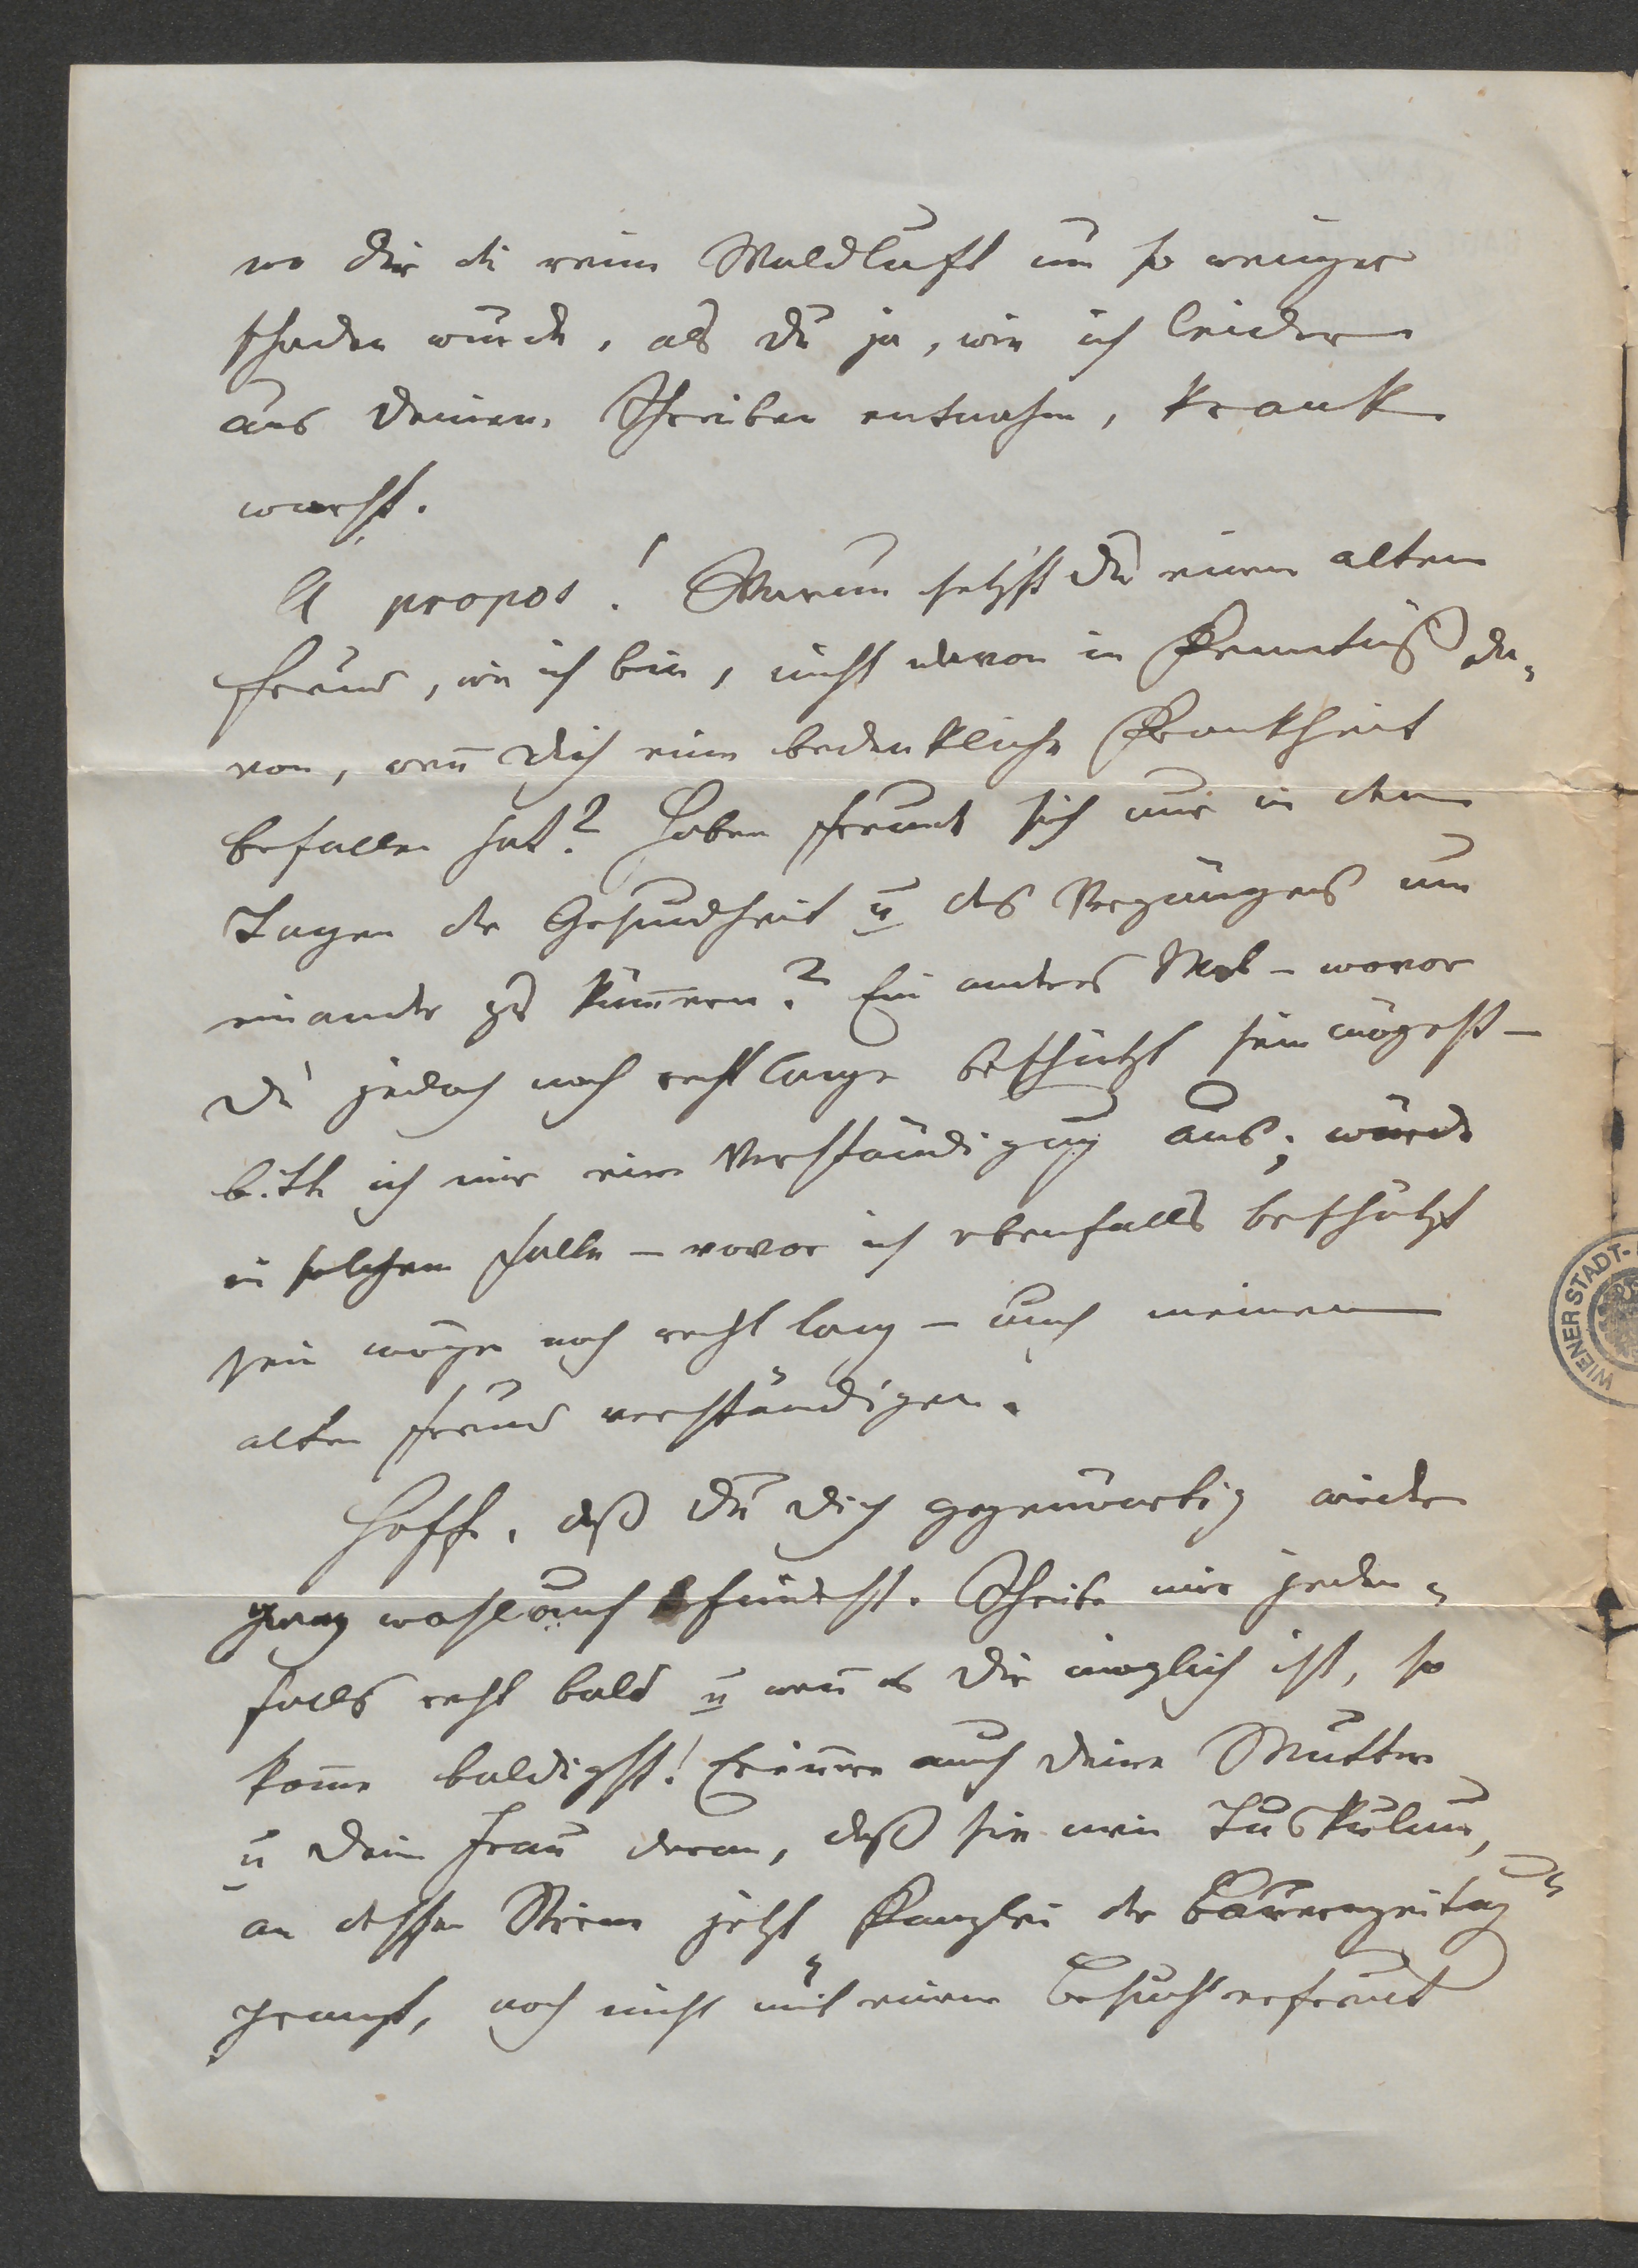 wo Dir die reine Waldluft um so weniger
schaden würde, als Du ja, wie ich leider
aus Deinem Schreiben entnahm, krank
warst.
A propos! Warum setzst Du einen alten
Freund, wie ich bin, nicht davon in Kenntniß da-
von, weñ Dich eine bedenkliche Krankheit
befallen hat? Haben Freunde sich nur in den
Tagen der Gesundheit u des Vergnügens um
einander zu küm̄ern? Ein anderes Mal – wovor
Du jedoch noch recht lange beschützt sein mögest –
bitte ich mir eine Verständigung aus; würde
in solchem Falle – wovor ich ebenfalls beschützt
sein möge noch recht lang – auch meinen
alten Freund verständigen.
Hoffe, daß Du Dich gegenwärtig wieder
ganz wohlauf befindest. Schreibe mir jeden-
falls recht bald u weñ es Dir möglich ist, so
kom̄e baldigst! Erin̄ere auch Deine Mutter
u Deine Frau daran, daß sie mein Tuskulum,
an dessen Stirne jetzt „Kanzlei der Bauernzeitung“
prangt, noch nicht mit einem Besuch erfreut
WIENER STADT-